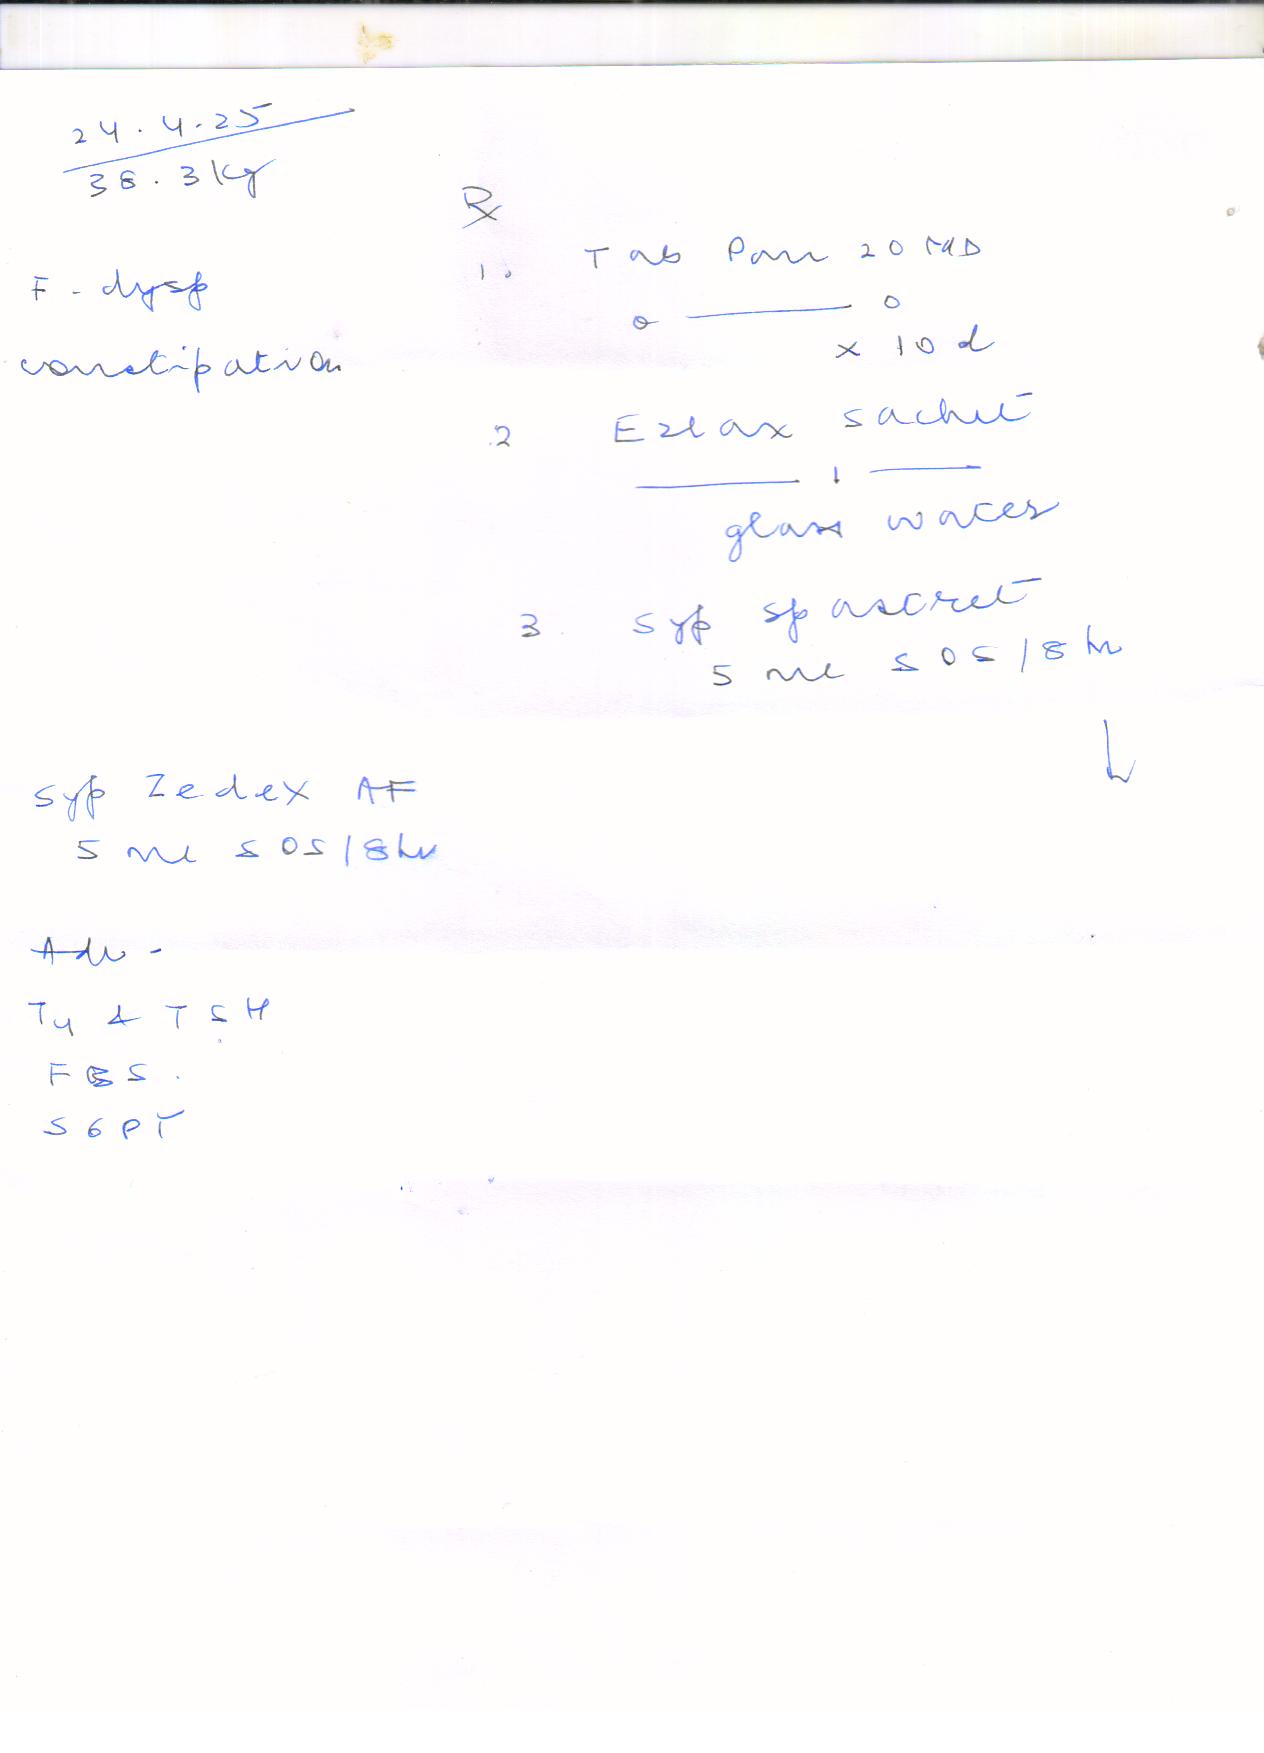 24.4.25
38.3 kg
F - dysp
constipation
Rx
1. Tab Pan 20 MD
0 —— 0
x 10 d
2 Ezlax sachet
—— 1 ——
glass water
3 Syp spascret
5 ml SOS/8 hr
Syp Zedex AF
5 ml SOS/8hr
Adv -
T4 & TSH
FBS.
SGPT